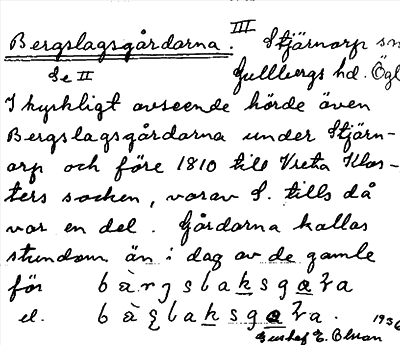 III
Bergslagsgårdarna. Stjärnorp sn
Se II Gullbergs hd. Ögl
I kyrkligt avseende hörde även
Bergslagsgårdarna under Stjärn-
orp och före 1810 till Vreta Klos-
ters socken, varav S. tills då
var en del. Gårdarna kallas
stundom än i dag av de gamle
för bàrgslaksgɑra
el. bàlaksgɑra. 1936
Gustaf E. Olsson